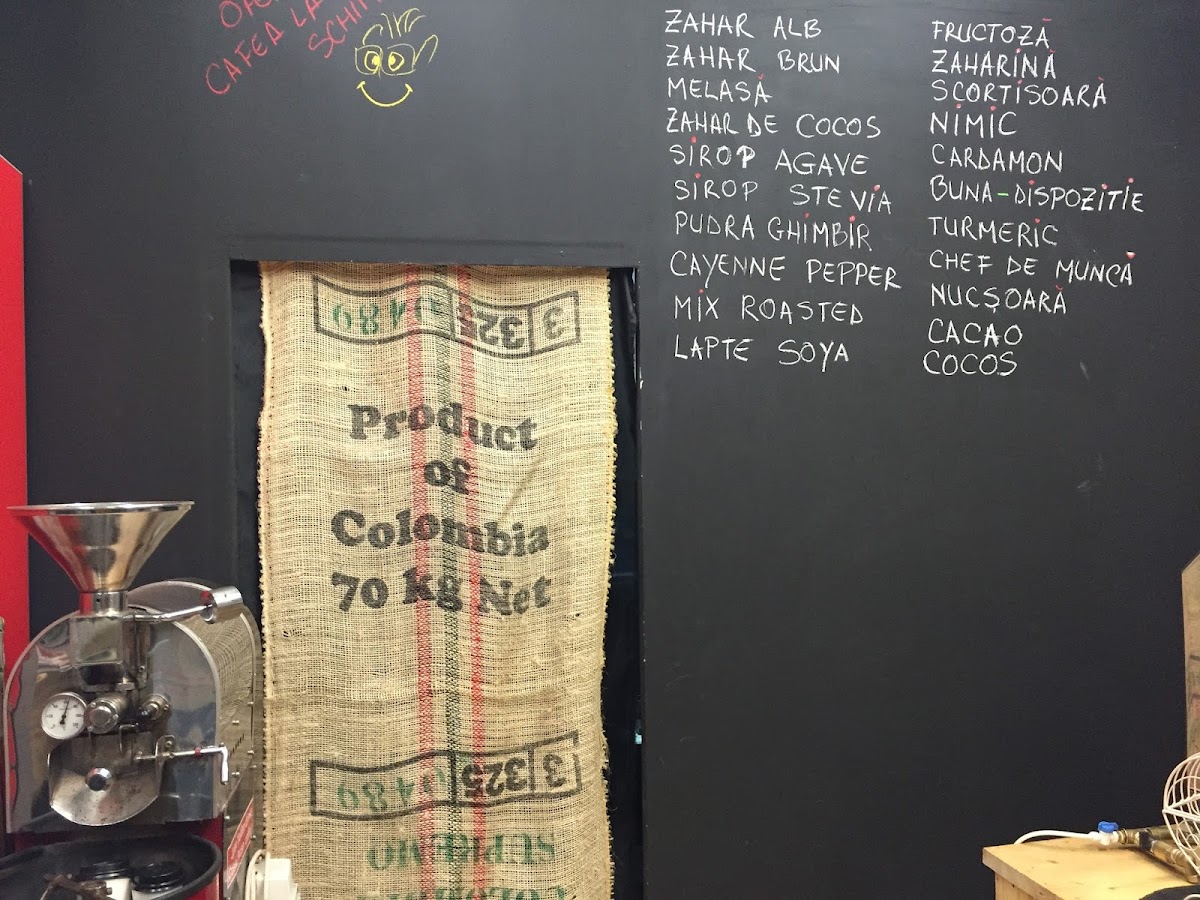 CAFEA LA
ZAHAR ALB
ZAHAR BRUN
MELASĂ
ZAHAR DE COCOS
SIROP AGAVE
SIROP STEVIA
PUDRA GHIMBIR
CAYENNE PEPPER
MIX ROASTED
LAPTE SOYA
FRUCTOZĂ
ZAHARINĂ
SCORTISOARĂ
NIMIC
CARDAMON
BUNA-DISPOZITIE
TURMERIC
CHEF DE MUNCĂ
NUCȘOARĂ
CACAO
COCOS
3 325 0489
Product
of
Colombia
70 Kg Net
3 325 0489
SUPREMO